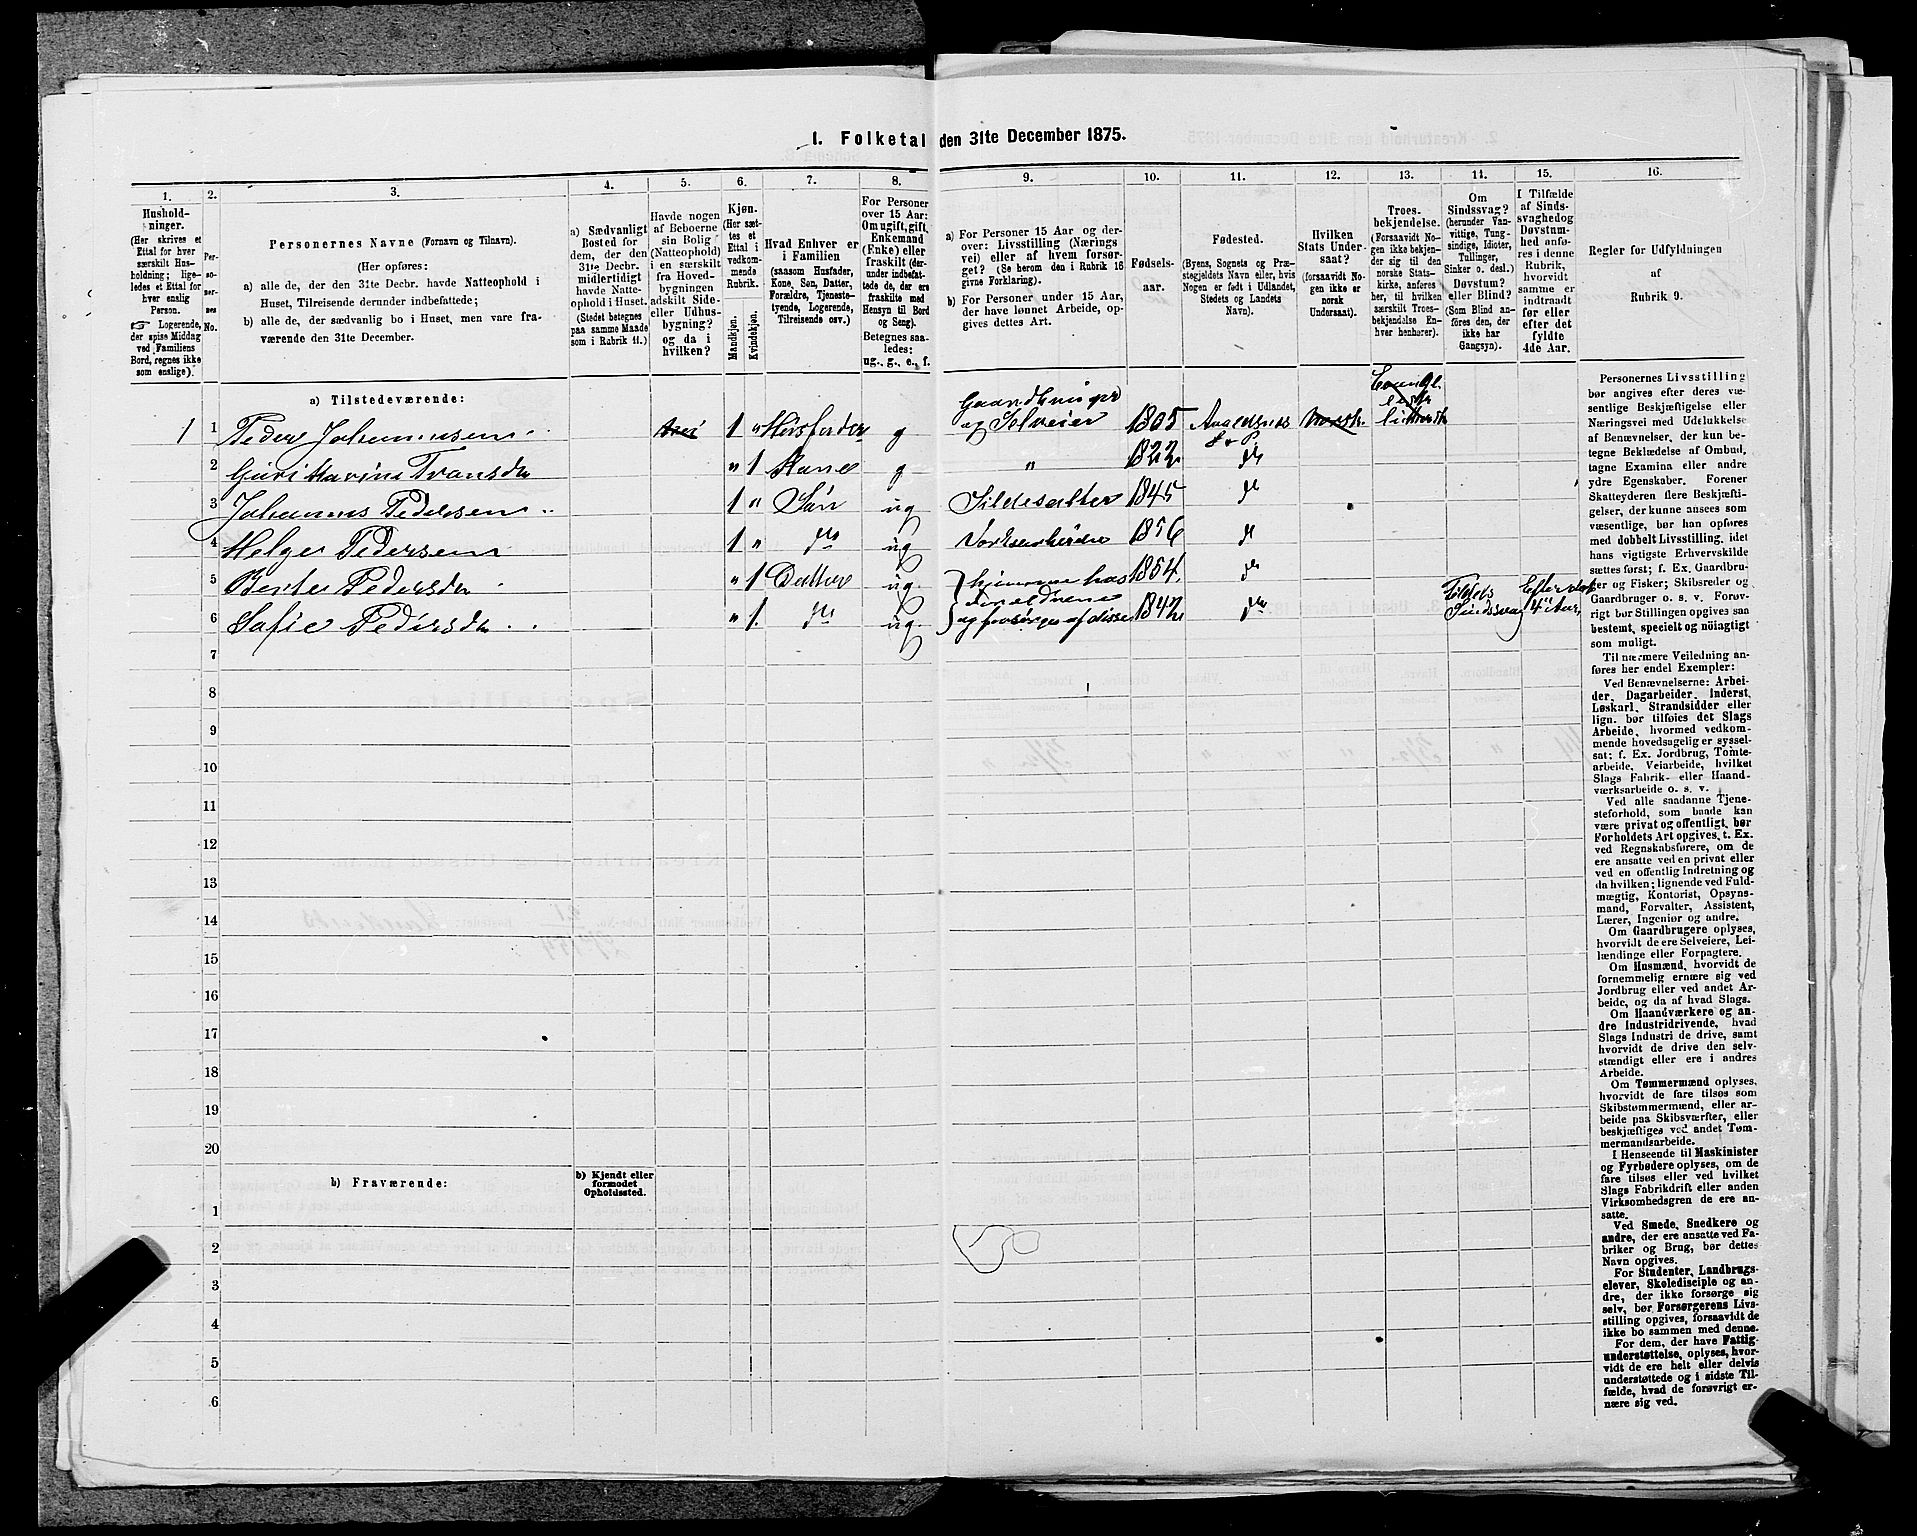 1. Folketal den 31te December 1875.
1. 2. 3. 4. 5. 6. 7. 8. 9. 10. 11. 12. 13. 14. 15. 16.
Hushold-
ninger.
(Her skrives et
Ettal for hver
særskilt Hus-
holdning; lige-
ledes et Ettal for
hver enslig
Person.
☞ Logerende,
der spise Middag
ved Familiens
Bord, regnes ikke
som enslige).
Per-
so-
ner-
nes
No.
Personernes Navne (Fornavn og Tilnavn).
(Her opføres:
a) alle de, der den 31te Decbr. havde Natteophold i
Huset, Tilreisende derunder indbefattede;
b) alle de, der sædvanlig bo i Huset, men vare fra-
værende den 31te December.
a) Sædvanligt
Bosted for
dem, der den
31te Decbr.
midlertidigt
havde Natte-
ophold i Huset.
(Stedet betegnes
paa samme Maade
som i Rubrik 11.)
Havde nogen
af Beboerne
sin Bolig
(Natteophold)
i en særskilt
fra Hoved-
bygningen
adskilt Side-
eller Udhus-
bygning?
og da i
hvilken?
Kjøn.
(Her sæt-
tes et
Ettal i
vedkom-
mende
Rubrik.
Mandkjøn.
Kvindekjøn.
Hvad Enhver er
i Familien
(saasom Husfader,
Kone, Søn, Datter,
Forældre, Tjeneste-
tyende, Logerende,
Tilreisende osv.)
For Personer
over 15 Aar:
Om ugift, gift,
Enkemand
(Enke) eller
fraskilt (der-
under indbefat-
tede de, der ere
fraskilte med
Hensyn til Bord
og Seng).
Betegnes saa-
ledes:
ug., g., e., f.
a) For Personer 15 Aar og der-
over: Livsstilling (Nærings
vei) eller af hvem forsør-
get? (Se herom den i Rubrik 16
givne Forklaring).
b) For Personer under 15 Aar,
der have lønnet Arbeide, op-
gives dettes Art.
Fødsels-
aar.
Fødested.
(Byens, Sognets og Præ-
stegjeldets Navn eller, hvis
Nogen er født i Udlandet,
Stedets og Landets
Navn).
Hvilken
Stats Under-
saat?
(forsaavidt No-
gen ikke er
norsk
Undersaat).
Troes-
bekjendelse.
(Forsaavidt No-
gen ikke bekjen-
der sig til den
norske Stats-
kirke, anføres
her, til hvilken
særskilt Troes-
bekjendelse En-
hver henhører).
Om
Sindssvag?
(herunder Van-
vittige, Tung-
sindige, Idioter,
Tullinger,
Sinker o. desl.)
Døvstum?
eller Blind?
(Som Blind an-
føres den, der
ikke har
Gangsyn).
I Tilfælde
af Sinds-
svaghed og
Døvstum-
hed anfø-
res i denne
Rubrik,
hvorvidt
samme er
indtraadt
før eller
efter det
fyldte
4de Aar.
Regler for Udfyldningen
af
Rubrik 9.
a) Tilstedeværende:
1 1 Peder Johannesen nei 1 " Huusfader g Gaardbruger og Selveier 1805 Norsk
2 " 1 Kone g " 1822 do
3 Johannes Pedersen 1 " Søn ug Sildesalter 1845 do
4 Helge Pedersen 1 " do ug 1856 do
5 Berte Pedersdtr " 1 Datter ug. hjemme hos 1854 do
6 Sofie Pedersdtr " 1 do ug. Forældrene og forsørges af disse 1842 do Sindssvag 4 Aar
7
8
9
10
11
12
13
14
15
16
17
18
19
20
b) Fraværende:
b) Kjendt eller
formodet
Opholdssted.
1
2
3
4
5
6
Personernes Livsstilling
bør angives efter deres væ-
sentlige Beskjæftigelse eller
Næringsvei med Udelukkelse
af Benævnelser, der kun be-
tegne Beklædelse af Ombud,
tagne Examina eller andre
ydre Egenskaber. Forener
Skatteyderen flere Beskjæfti-
gelser, der kunne ansees som
væsentlige, bør han opføres
med dobbelt Livsstilling, idet
hans vigtigste Erhvervskilde
sættes først; f. Ex. Gaardbru-
ger og Fisker; Skibsreder og
Gaardbruger o. s. v. Forøv-
rigt bør Stillingen opgives saa
bestemt, specielt og nøiagtigt
som muligt.
Til nærmere Veiledning an-
føres her endel Exempler:
Ved Benævnelserne: Arbei-
der, Dagarbeider, Inderst,
Løskarl, Strandsidder eller
lign. bør tilføies det Slags
Arbeide, hvormed vedkom-
mende hovedsagelig er syssel-
sat; f. Ex. Jordbrug, Tomte-
arbeide, Veiarbeide, hvilket
Slags Fabrik- eller Haand-
værksarbeide o. s. v.
Ved alle saadanne Tjene-
steforhold, som baade kan
være privat og offentligt, bør
Forholdets Art opgives, t. Ex.
ved Regnskabsførere, om de
ere ansatte ved en privat eller
ved en offentlig Indretning og
da hvilken; lignende ved Fuld-
mægtig, Kontorist, Opsyns-
mand, Forvalter, Assistent,
Lærer, Ingeniør og andre.
Om Gaardbrugere oplyses,
hvorvidt de ere Selveiere, Lei-
lændinge eller Forpagtere.
Om Husmænd, hvorvidt de
fornemmelig ernære sig ved
Jordbrug eller ved andet Ar-
beide, og da af hvad Slags.
Om Haandværkere og an-
dre Industridrivende, hvad
Slags Industri de drive, samt
hvorvidt de drive den selv-
stændigt eller ere i andres
Arbeide.
Om Tømmermænd oplyses,
hvorvidt de fare tilsøs som
Skibstømmermænd, eller ar-
beide paa Skibsværfter, eller
beskjæftiges ved andet Tøm-
mermandsarbeide.
I Henseende til Maskinister
og Fyrbødere oplyses, om de
fare tilsøs eller ved hvilket
Slags Fabrikdrift eller anden
Virksomhedsgren de ere an-
satte.
Ved Smede, Snedkere og
andre, der ere ansatte ved Fa-
briker og Brug, bør dettes
Navn opgives.
For Studenter, Landbrugs-
elever, Skoledisciple og an-
dre, der ikke forsørge sig
selv, bør Forsørgerens Livs-
stilling opgives, forsaavidt de
ikke bo sammen med denne.
For dem, der have Fattig-
understøttelse, oplyses, hvor-
vidt de ere helt eller delvis
understøttede og i sidste Til-
fælde, hvad de forøvrigt er-
nære sig ved.